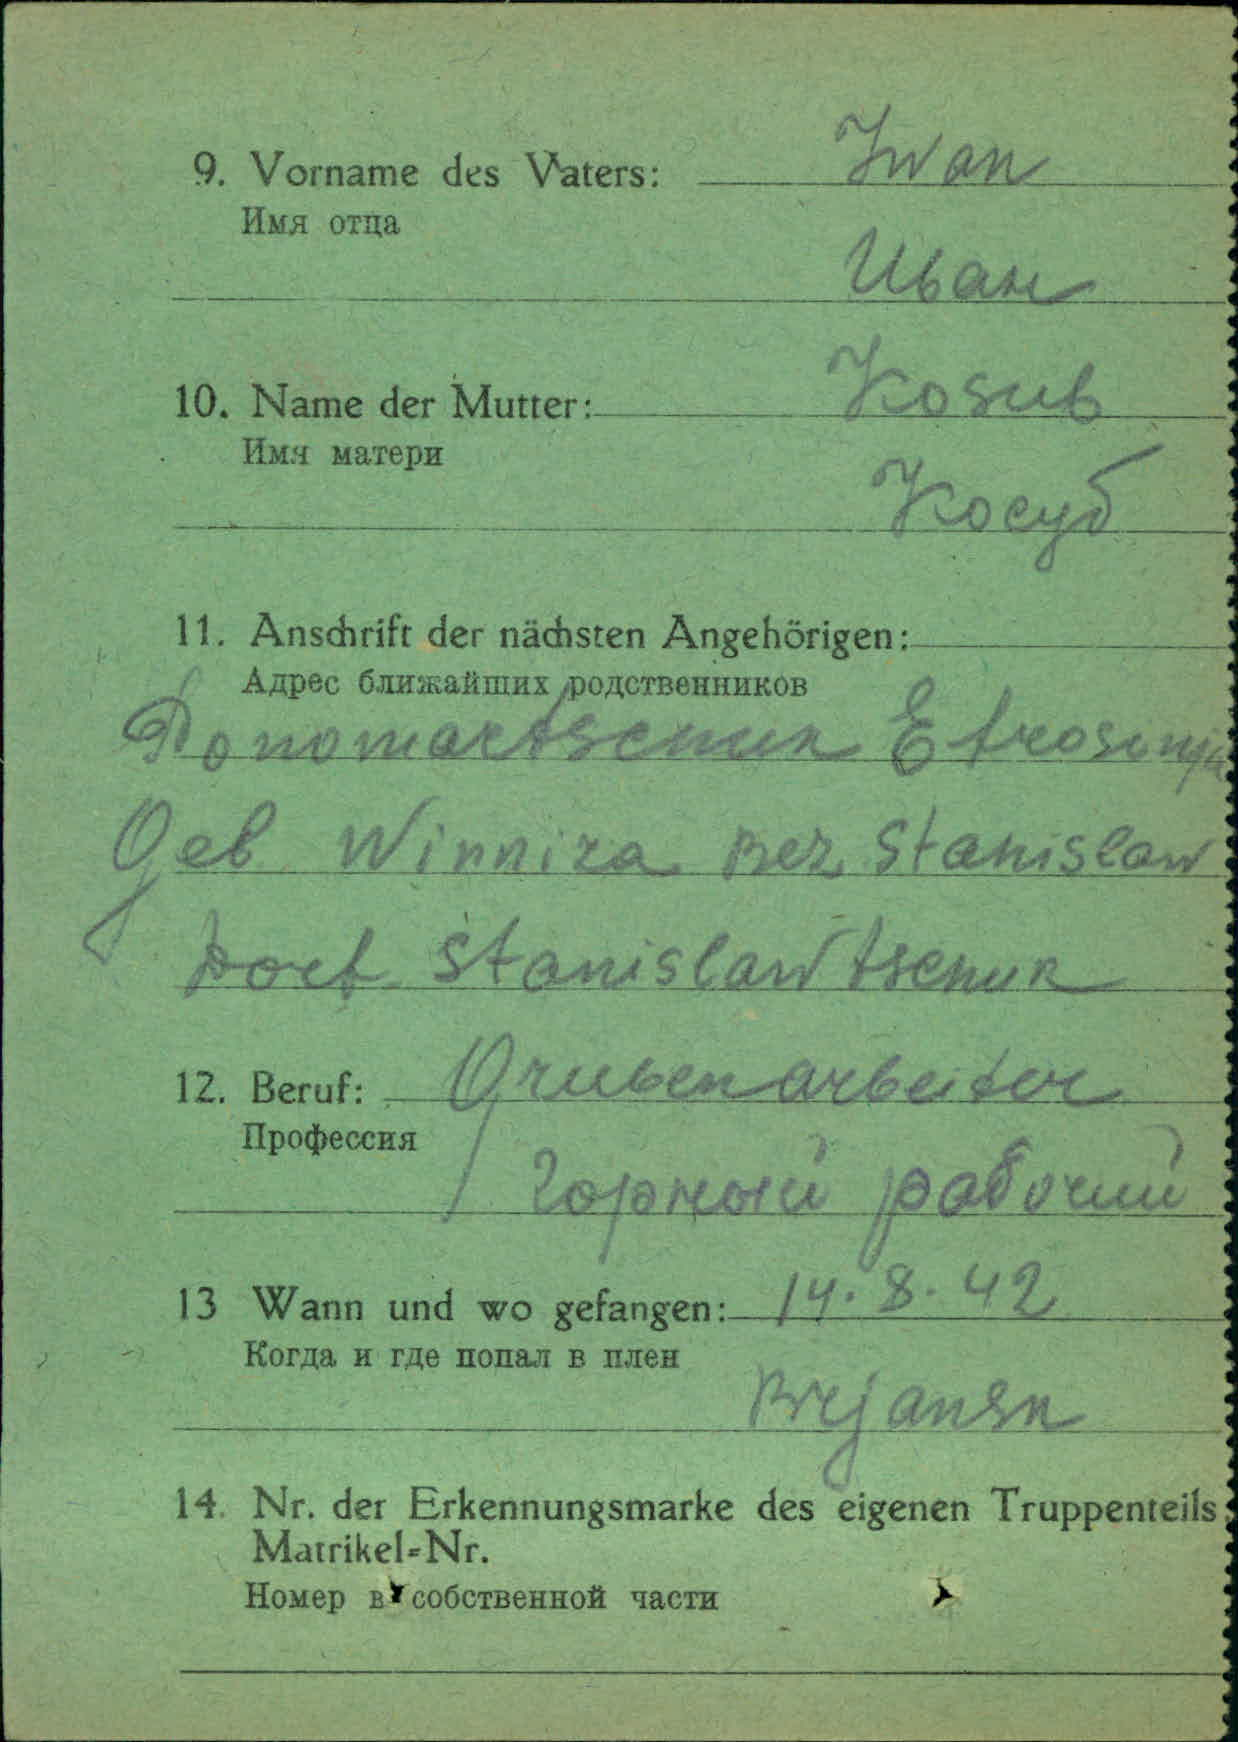 9. Vorname des Vaters: Iwan
Имя отца
Иван
10. Name der Mutter: Kosub
Имя матери
Косуб
11. Anschrift der nächsten Angehörigen:
Адрес ближайших родственников
Ponomartschuk Efrosinja
Geb Winniza Bez. Stanislaw
Dorf Stanislawtschuk
12. Beruf: Grubenarbeiter
Профессия
Горный рабочий
13 Wann und wo gefangen: 14.8.42
Когда и где попал в плен
Brjansk
14. Nr. der Erkennungsmarke des eigenen Truppenteils
Matrikel-Nr.
Номер в собственной части